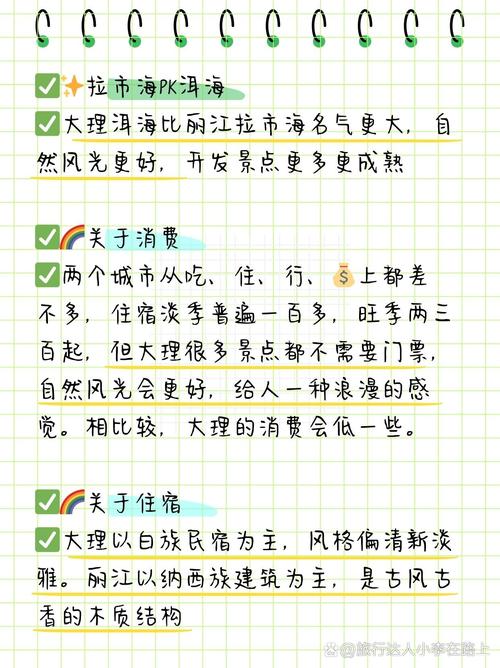 ✅✨拉市海PK洱海
✅大理洱海比丽江拉市海名气更大，自
然风光更好，开发景点更多更成熟
✅🌈关于消费
✅两个城市从吃、住、行、💰上都差
不多，住宿淡季普遍一百多，旺季两三
百起，但大理很多景点都不需要门票，
自然风光会更好，给人一种浪漫的感
觉。相比较，大理的消费会低一些。
✅🌈关于住宿
✅大理以白族民宿为主，风格偏清新淡
雅。丽江以纳西族建筑为主，是古风古
香的木质结构
@旅行达人小李在路上